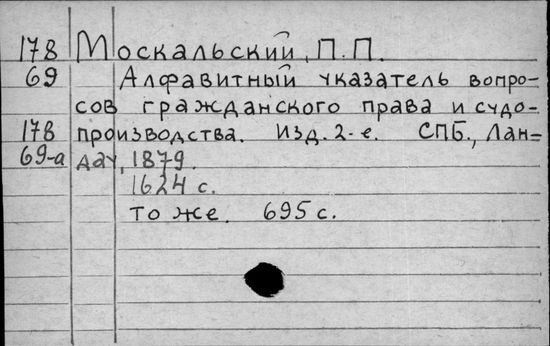 178 Москальский, П.П.
69 Алфавитный указатель вопро-
сов гражданского права и судо-
178 производства. Изд. 2-е. СПБ., Лан-
69-а дау, 1879.
1624 с.
то же. 695 с.